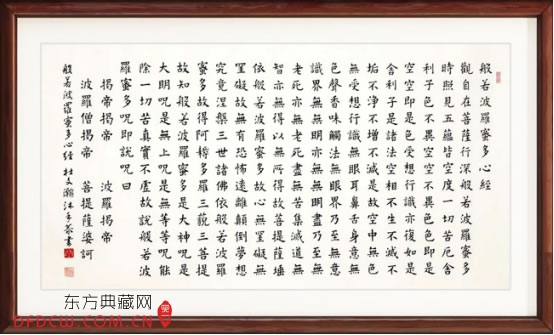 般若波羅蜜多心經
觀自在菩薩行深般若波羅蜜多
時照見五蘊皆空度一切苦厄舍
利子色不異空空不異色色即是
空空即是色受想行識亦復如是
舍利子是諸法空相不生不滅不
垢不淨不增不減是故空中無色
無受想行識無眼耳鼻舌身意無
色聲香味觸法無眼界乃至無意
識界無無明亦無無明盡乃至無
老死亦無老死盡無苦集滅道無
智亦無得以無所得故菩提薩埵
依般若波羅蜜多故心無罣礙無
罣礙故無有恐怖遠離顛倒夢想
究竟涅槃三世諸佛依般若波羅
蜜多故得阿耨多羅三藐三菩提
故知般若波羅蜜多是大神呪是
大明呪是無上呪是無等等呪能
除一切苦真實不虛故說般若波
羅蜜多呪即說呪曰
揭帝揭帝 波羅揭帝
波羅僧揭帝 菩提薩婆訶
般若波羅蜜多心經 杜文瀚沐手恭書
东方典藏网
DFDCW.COM.CN